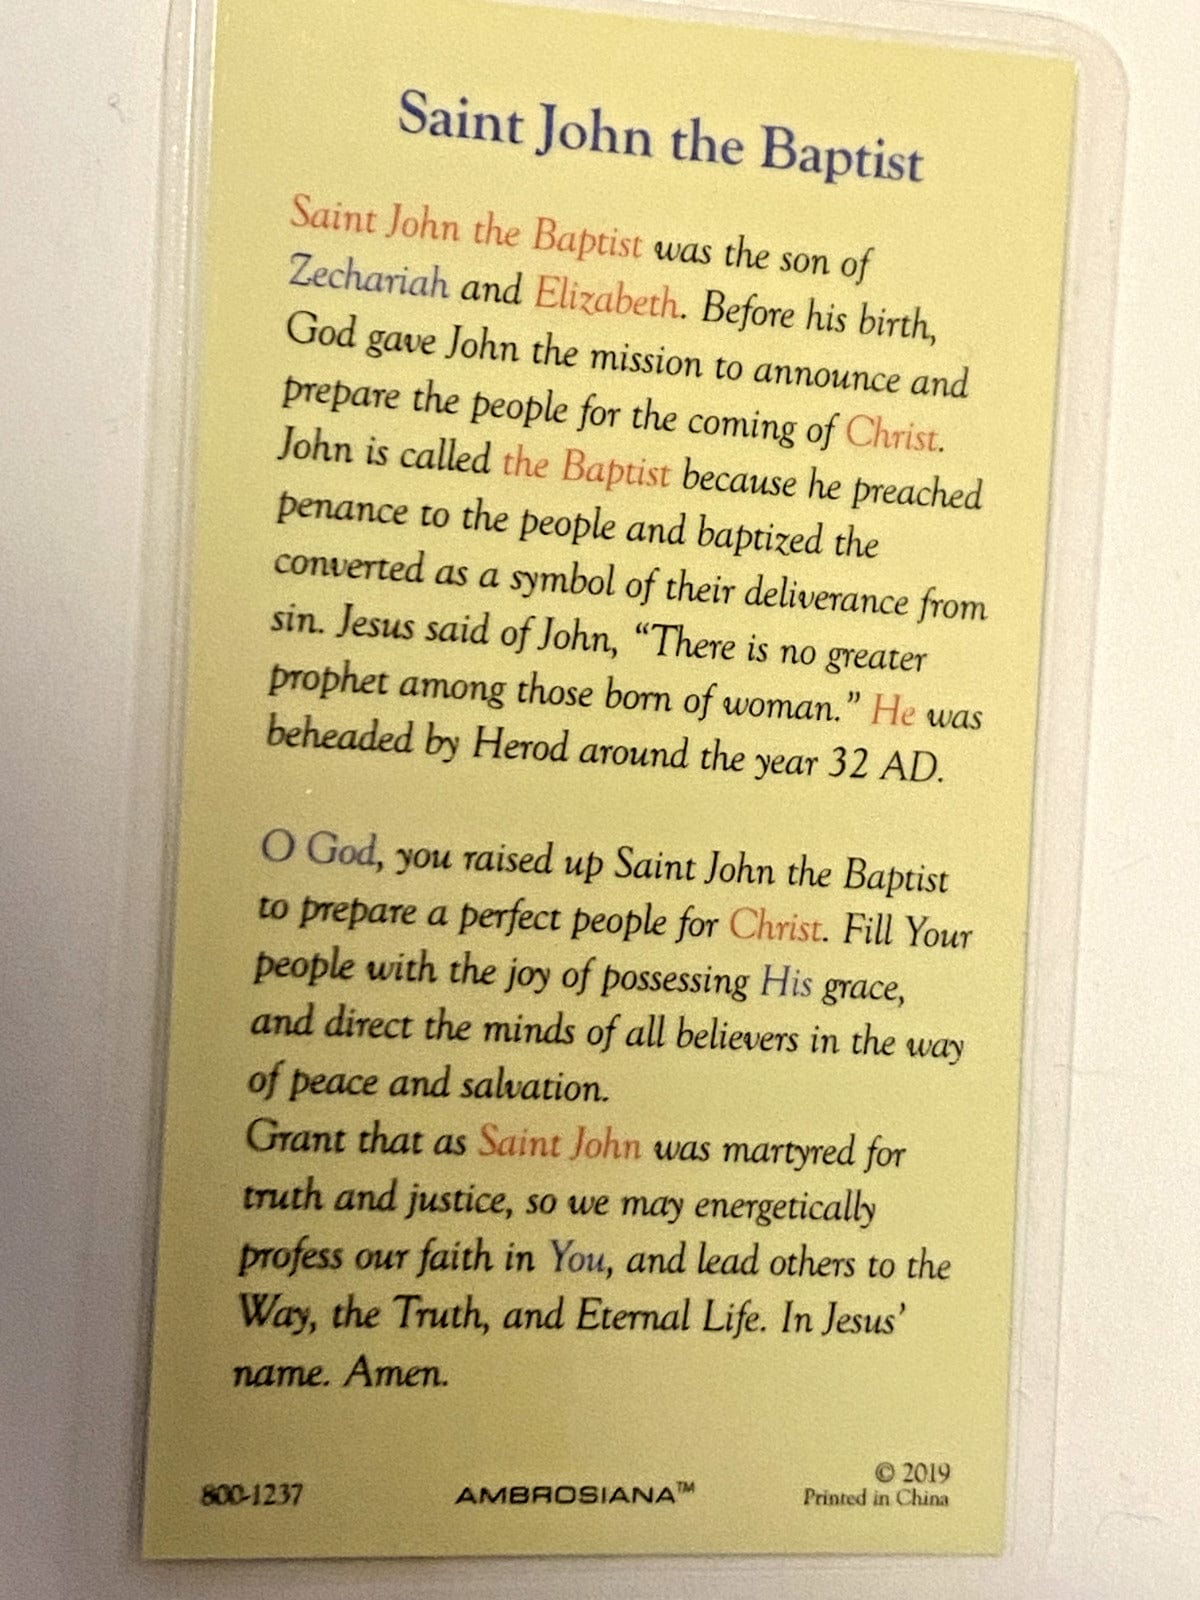 Saint John the Baptist
Saint John the Baptist was the son of
Zechariah and Elizabeth. Before his birth,
God gave John the mission to announce and
prepare the people for the coming of Christ.
John is called the Baptist because he preached
penance to the people and baptized the
converted as a symbol of their deliverance from
sin. Jesus said of John, “There is no greater
prophet among those born of woman.” He was
beheaded by Herod around the year 32 AD.
O God, you raised up Saint John the Baptist
to prepare a perfect people for Christ. Fill Your
people with the joy of possessing His grace,
and direct the minds of all believers in the way
of peace and salvation.
Grant that as Saint John was martyred for
truth and justice, so we may energetically
profess our faith in You, and lead others to the
Way, the Truth, and Eternal Life. In Jesus’
name. Amen.
800-1237
AMBROSIANA™
© 2019
Printed in China